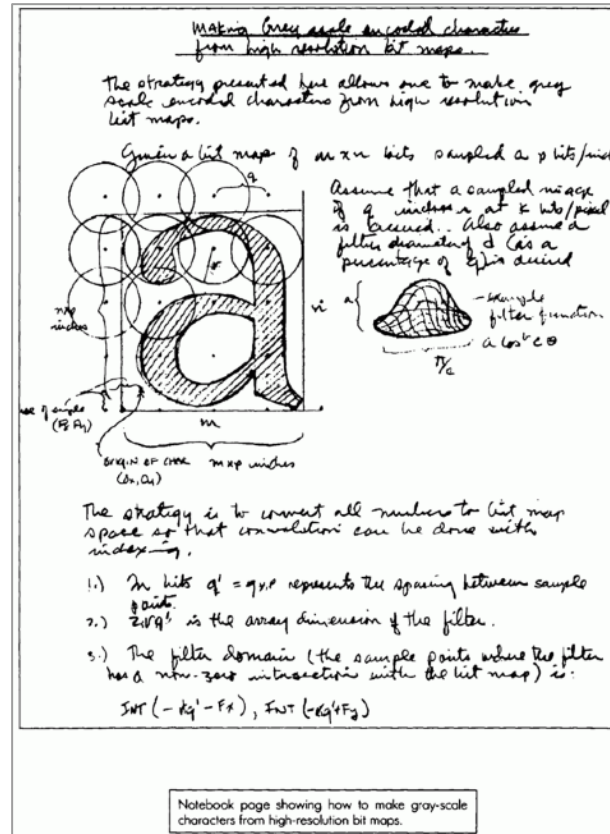 Making Grey scale encoded characters
from high resolution bit maps.
The strategy presented here allows one to make grey
scale encoded characters from high resolution
bit maps.
Given a bit map of m x n bits sampled a p bits/inch
q
Assume that a sampled image
of q inches at k bits/pixel
is desired. Also assume a
filter diameter of d (as a
percentage of q) is desired
a
example
filter function
a cos
inches
m
ORIGIN OF CHAR
(Ox, Oy)
m x p inches
The strategy is to convert all numbers to bit map
space so that convolution can be done with
indexing.
1.) In bits q' = q x p represents the spacing between sample
points.
2.) is the array dimension of the filter.
3.) The filter domain (the sample points where the filter
has a non-zero intersection with the bit map) is:
INT (- Kq' - Fx), INT (-Kq'+Fy)
Notebook page showing how to make gray-scale
characters from high-resolution bit maps.